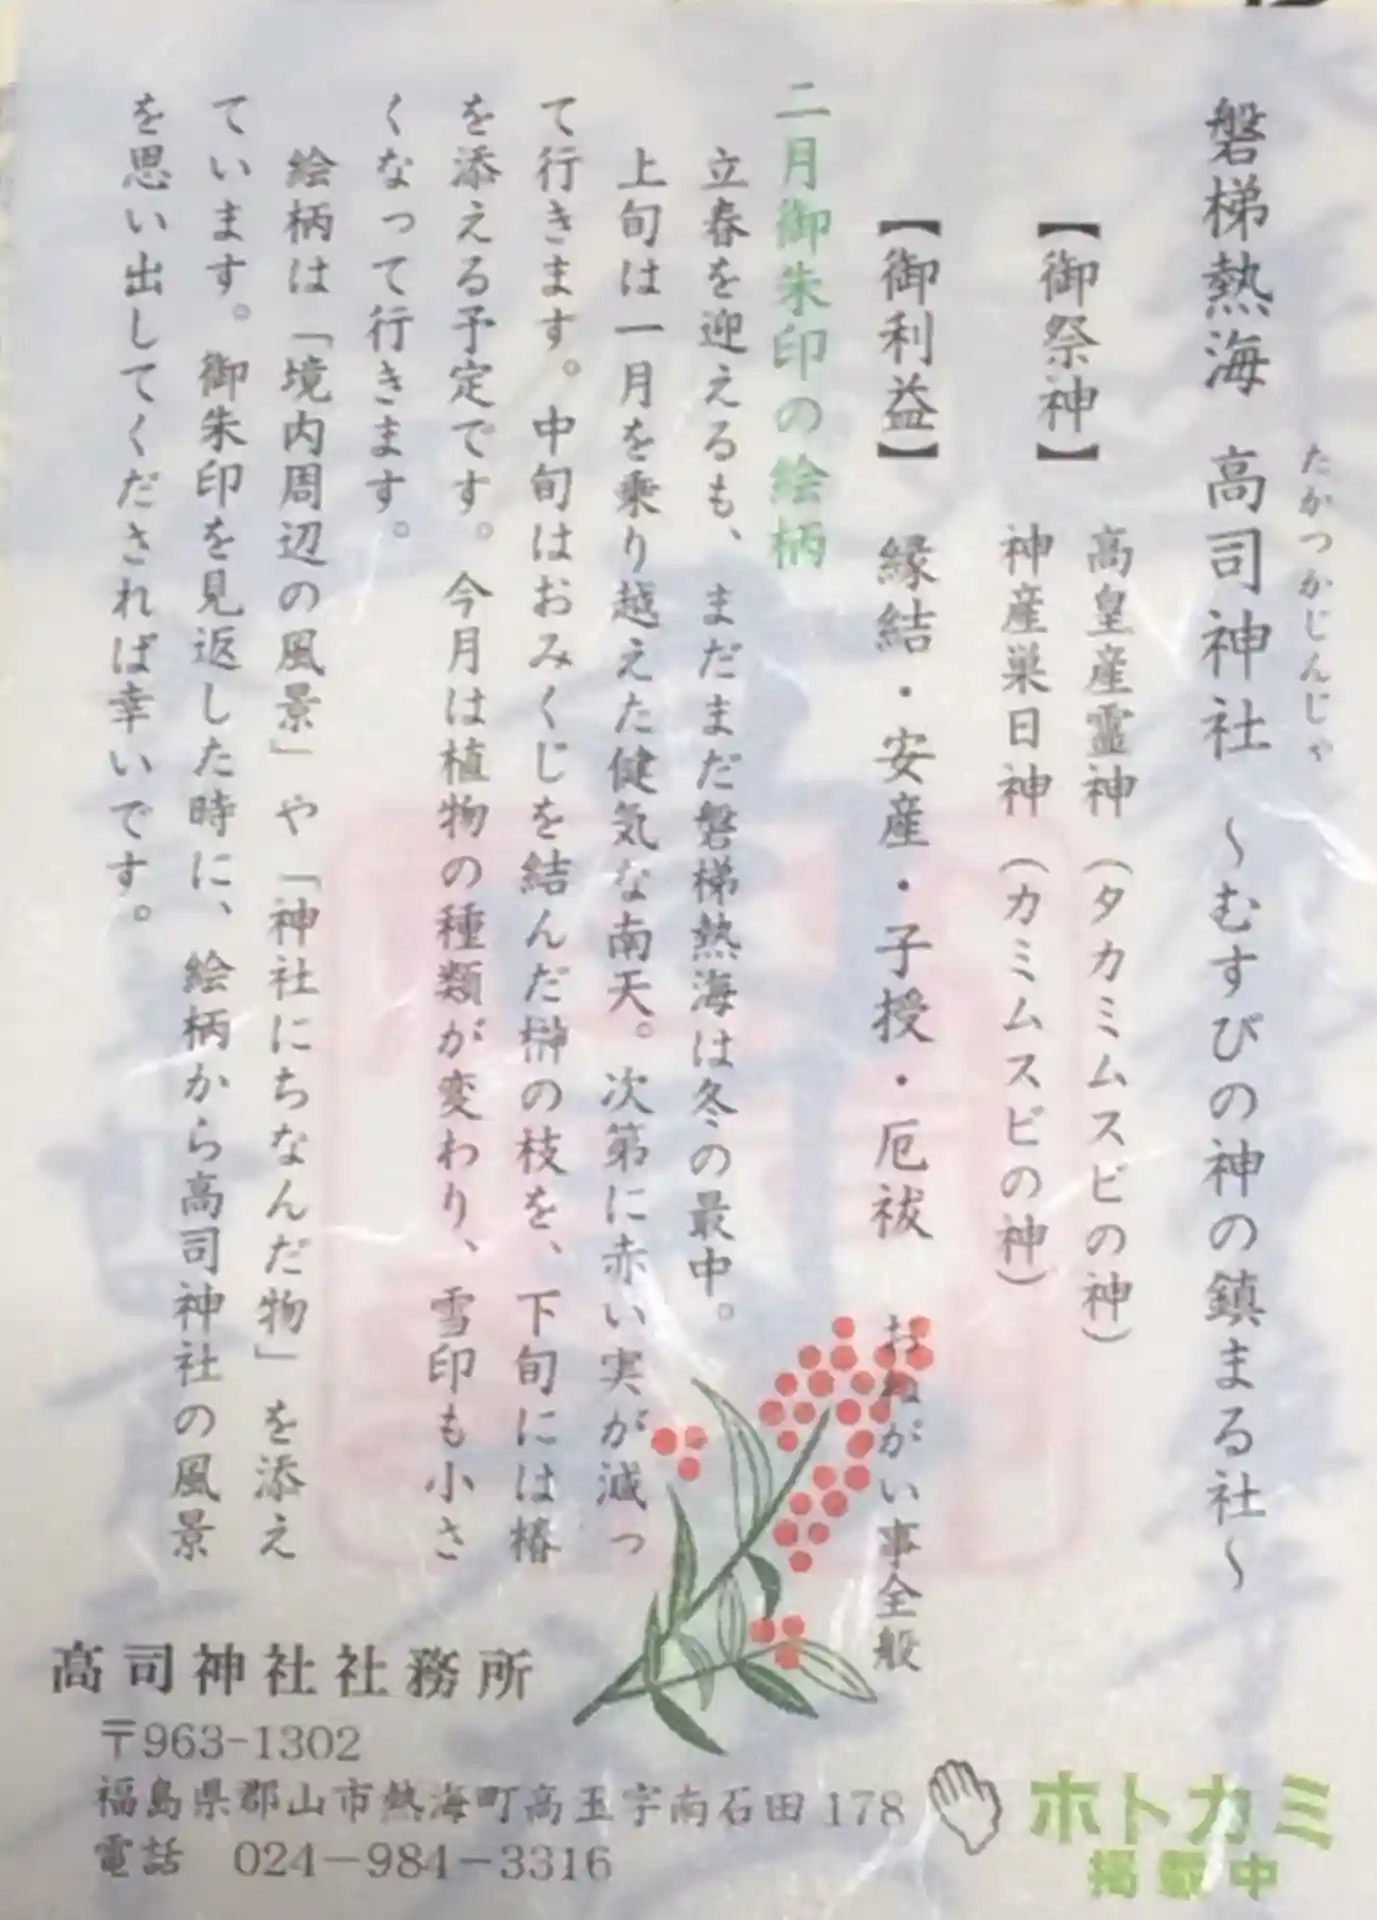 たかつかじんじゃ
磐梯熱海 高司神社 ～むすびの神の鎮まる社～
【御祭神】 高皇産霊神（タカミムスビの神）
神産巣日神（カミムスビの神）
【御利益】 縁結・安産・子授・厄祓 おねがい事全般
二月御朱印の絵柄
立春を迎えるも、まだまだ磐梯熱海は冬の最中。
上旬は一月を乗り越えた健気な南天。次第に赤い実が減っ
て行きます。中旬はおみくじを結んだ榊の枝を、下旬には椿
を添える予定です。今月は植物の種類が変わり、雪印も小さ
くなって行きます。
絵柄は「境内周辺の風景」や「神社にちなんだ物」を添え
ています。御朱印を見返した時に、絵柄から高司神社の風景
を思い出してくだされば幸いです。
高司神社社務所
〒963-1302
福島県郡山市熱海町高玉字南石田178
電話 024-984-3316
ホトカミ
掲載中